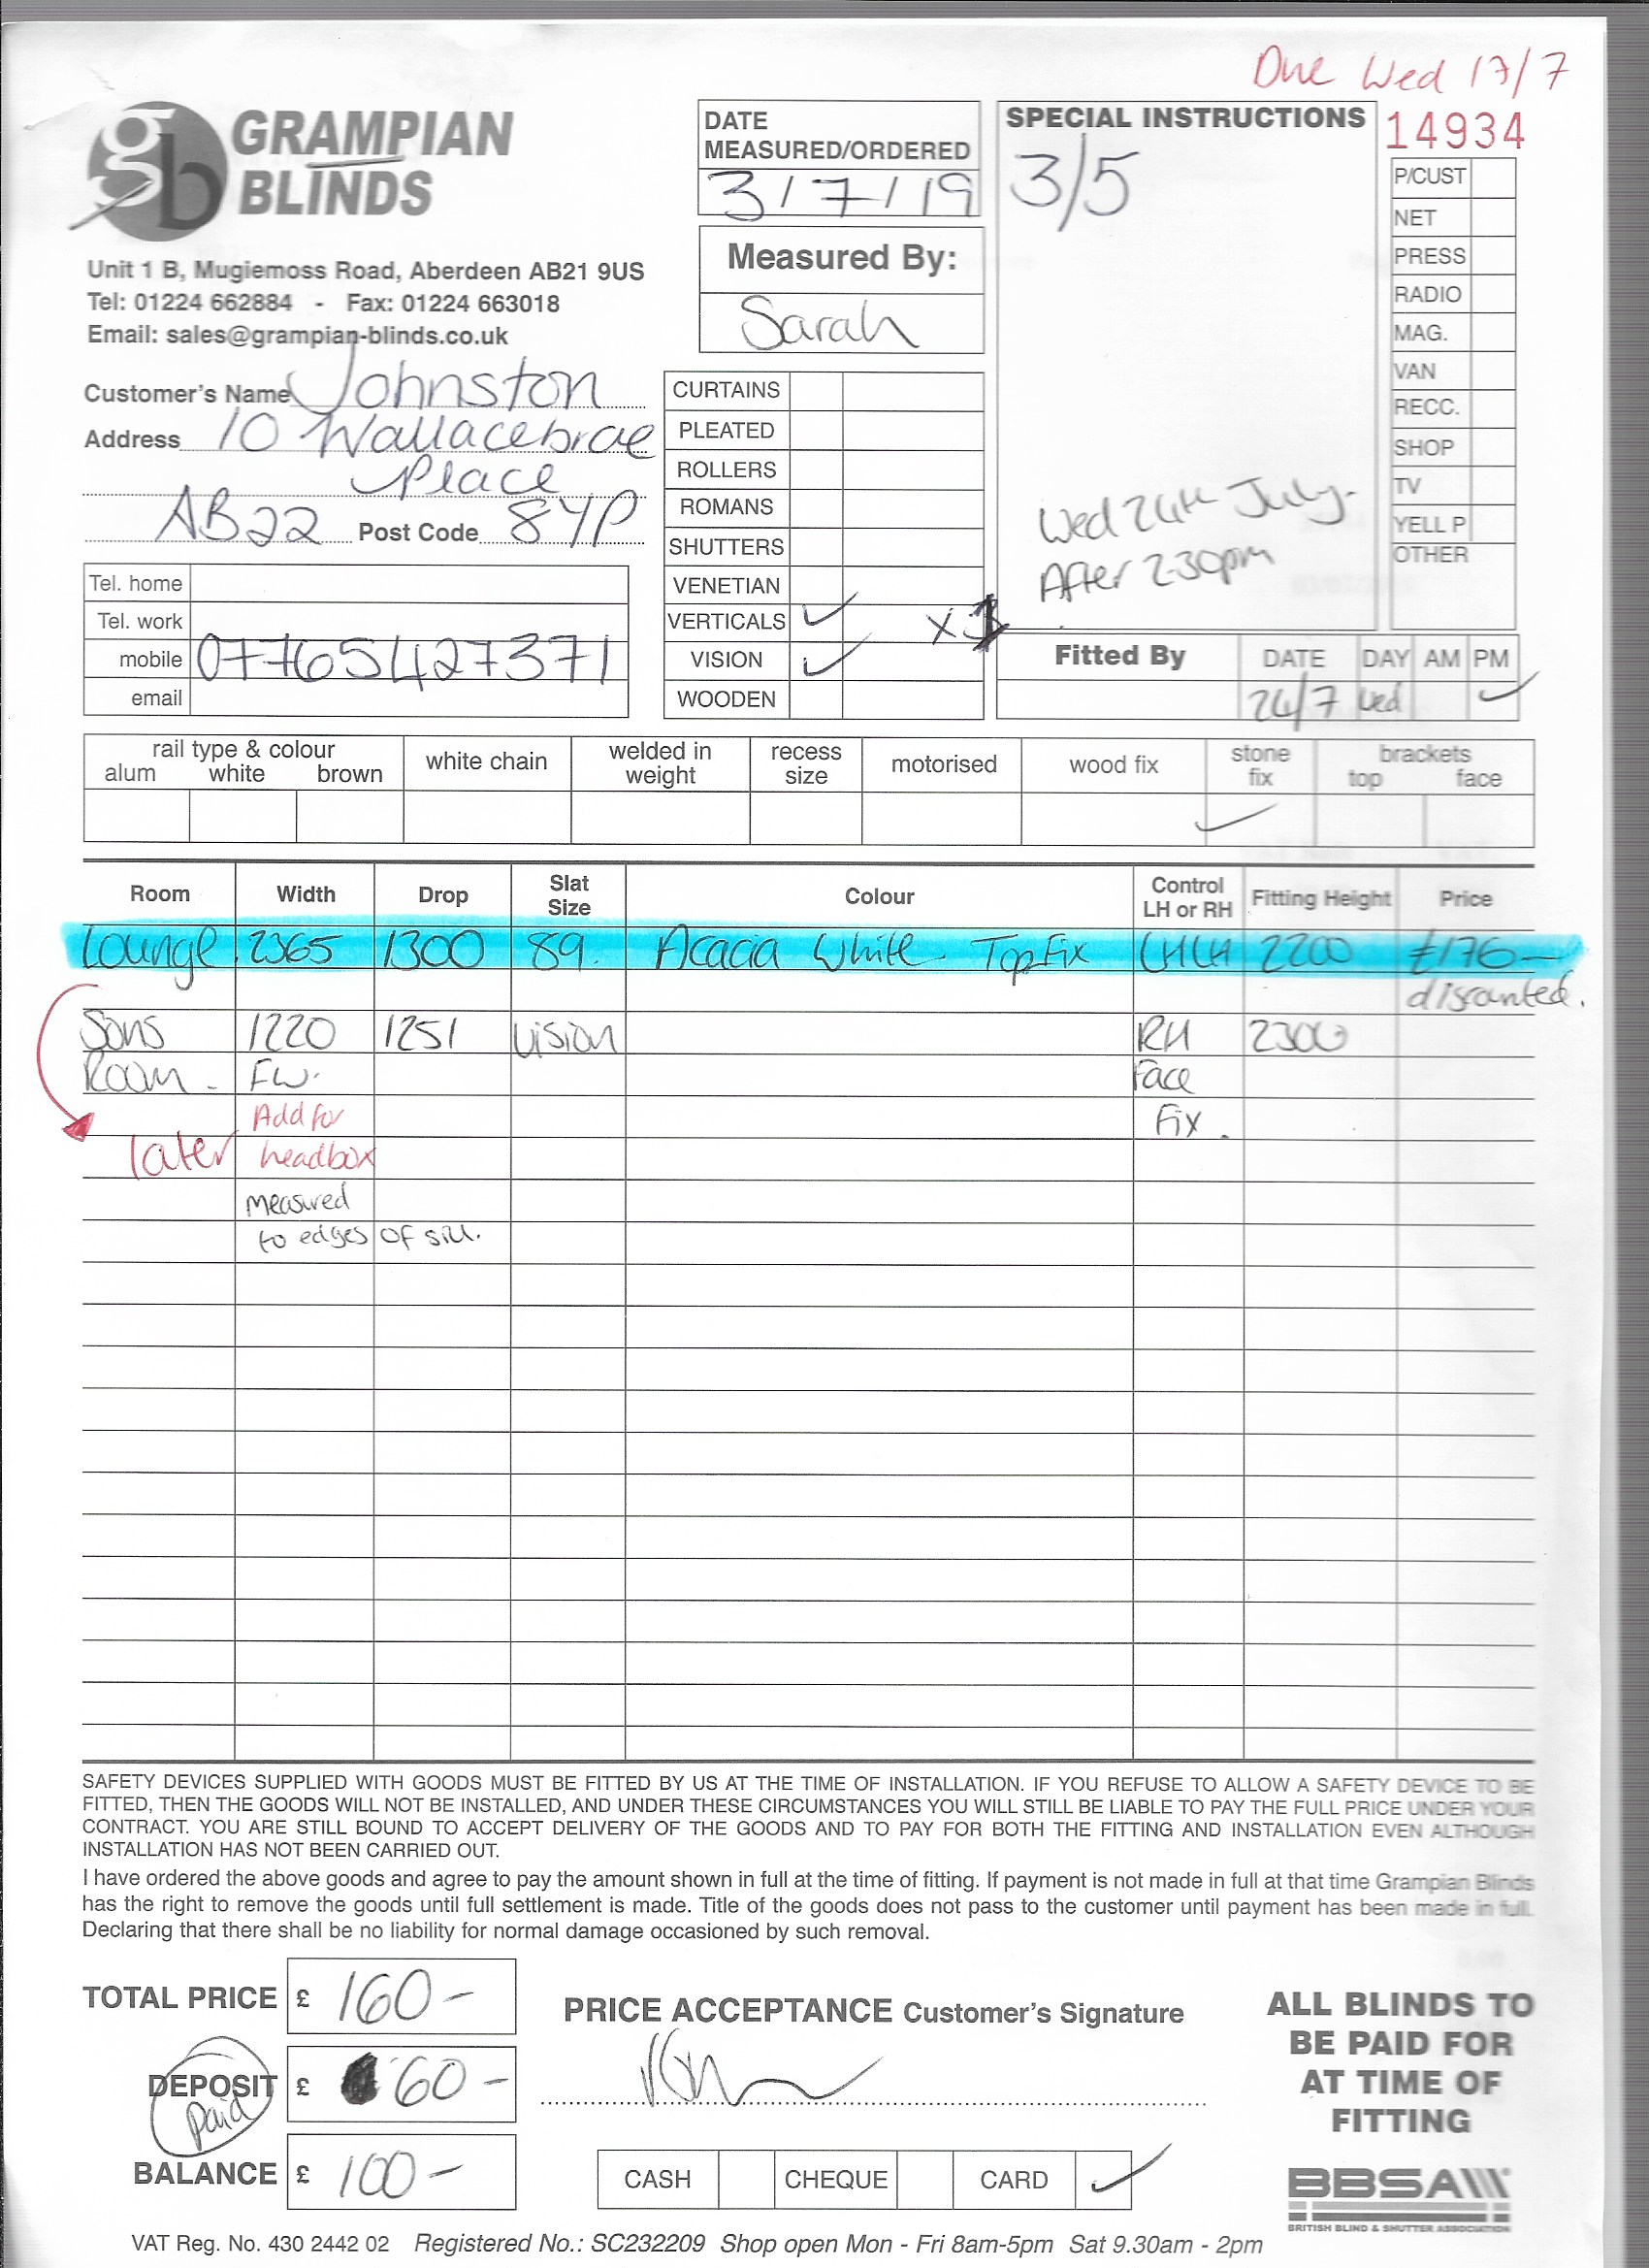 Due Wed 17/7
GRAMPIAN
BLINDS
Unit 1 B, Mugiemoss Road, Aberdeen AB21 9US
Tel: 01224 662884 - Fax: 01224 663018
Email: sales@grampian-blinds.co.uk
DATE
MEASURED/ORDERED
3/7/19
Measured By:
Sarah
SPECIAL INSTRUCTIONS
3/5
Wed 24th July.
After 2.30pm
14934
P/CUST
NET
PRESS
RADIO
MAG.
VAN
RECC.
SHOP
TV
YELL P
OTHER
Customer's Name Johnston
Address 10 Wallacebrae
Place
AB22 Post Code 8YP
Tel. home
Tel. work
mobile 07765427371
email
CURTAINS
PLEATED
ROLLERS
ROMANS
SHUTTERS
VENETIAN
VERTICALS ✓
VISION ✓
WOODEN
Fitted By DATE DAY AM PM
24/7 Wed ✓
rail type & colour
alum white brown
white chain
welded in
weight
recess
size
motorised
wood fix
stone
fix
✓
brackets
top face
Room Width Drop Slat Size Colour Control LH or RH Fitting Height Price
Lounge 2365 1300 89. Acacia White Top Fix LHLH 2200 £176-
discounted.
Sons 1220 1251 Vision RH 2300
Room - FW. Face
Add for Fix.
later headbox
measured
to edges of sill.
SAFETY DEVICES SUPPLIED WITH GOODS MUST BE FITTED BY US AT THE TIME OF INSTALLATION. IF YOU REFUSE TO ALLOW A SAFETY DEVICE TO BE
FITTED, THEN THE GOODS WILL NOT BE INSTALLED, AND UNDER THESE CIRCUMSTANCES YOU WILL STILL BE LIABLE TO PAY THE FULL PRICE UNDER YOUR
CONTRACT. YOU ARE STILL BOUND TO ACCEPT DELIVERY OF THE GOODS AND TO PAY FOR BOTH THE FITTING AND INSTALLATION EVEN ALTHOUGH
INSTALLATION HAS NOT BEEN CARRIED OUT.
I have ordered the above goods and agree to pay the amount shown in full at the time of fitting. If payment is not made in full at that time Grampian Blinds
has the right to remove the goods until full settlement is made. Title of the goods does not pass to the customer until payment has been made in full.
Declaring that there shall be no liability for normal damage occasioned by such removal.
TOTAL PRICE £ 160-
DEPOSIT £ 60-
paid
BALANCE £ 100-
PRICE ACCEPTANCE Customer's Signature
CASH CHEQUE CARD ✓
ALL BLINDS TO
BE PAID FOR
AT TIME OF
FITTING
BBSA
BRITISH BLIND & SHUTTER ASSOCIATION
VAT Reg. No. 430 2442 02 Registered No.: SC232209 Shop open Mon - Fri 8am-5pm Sat 9.30am - 2pm